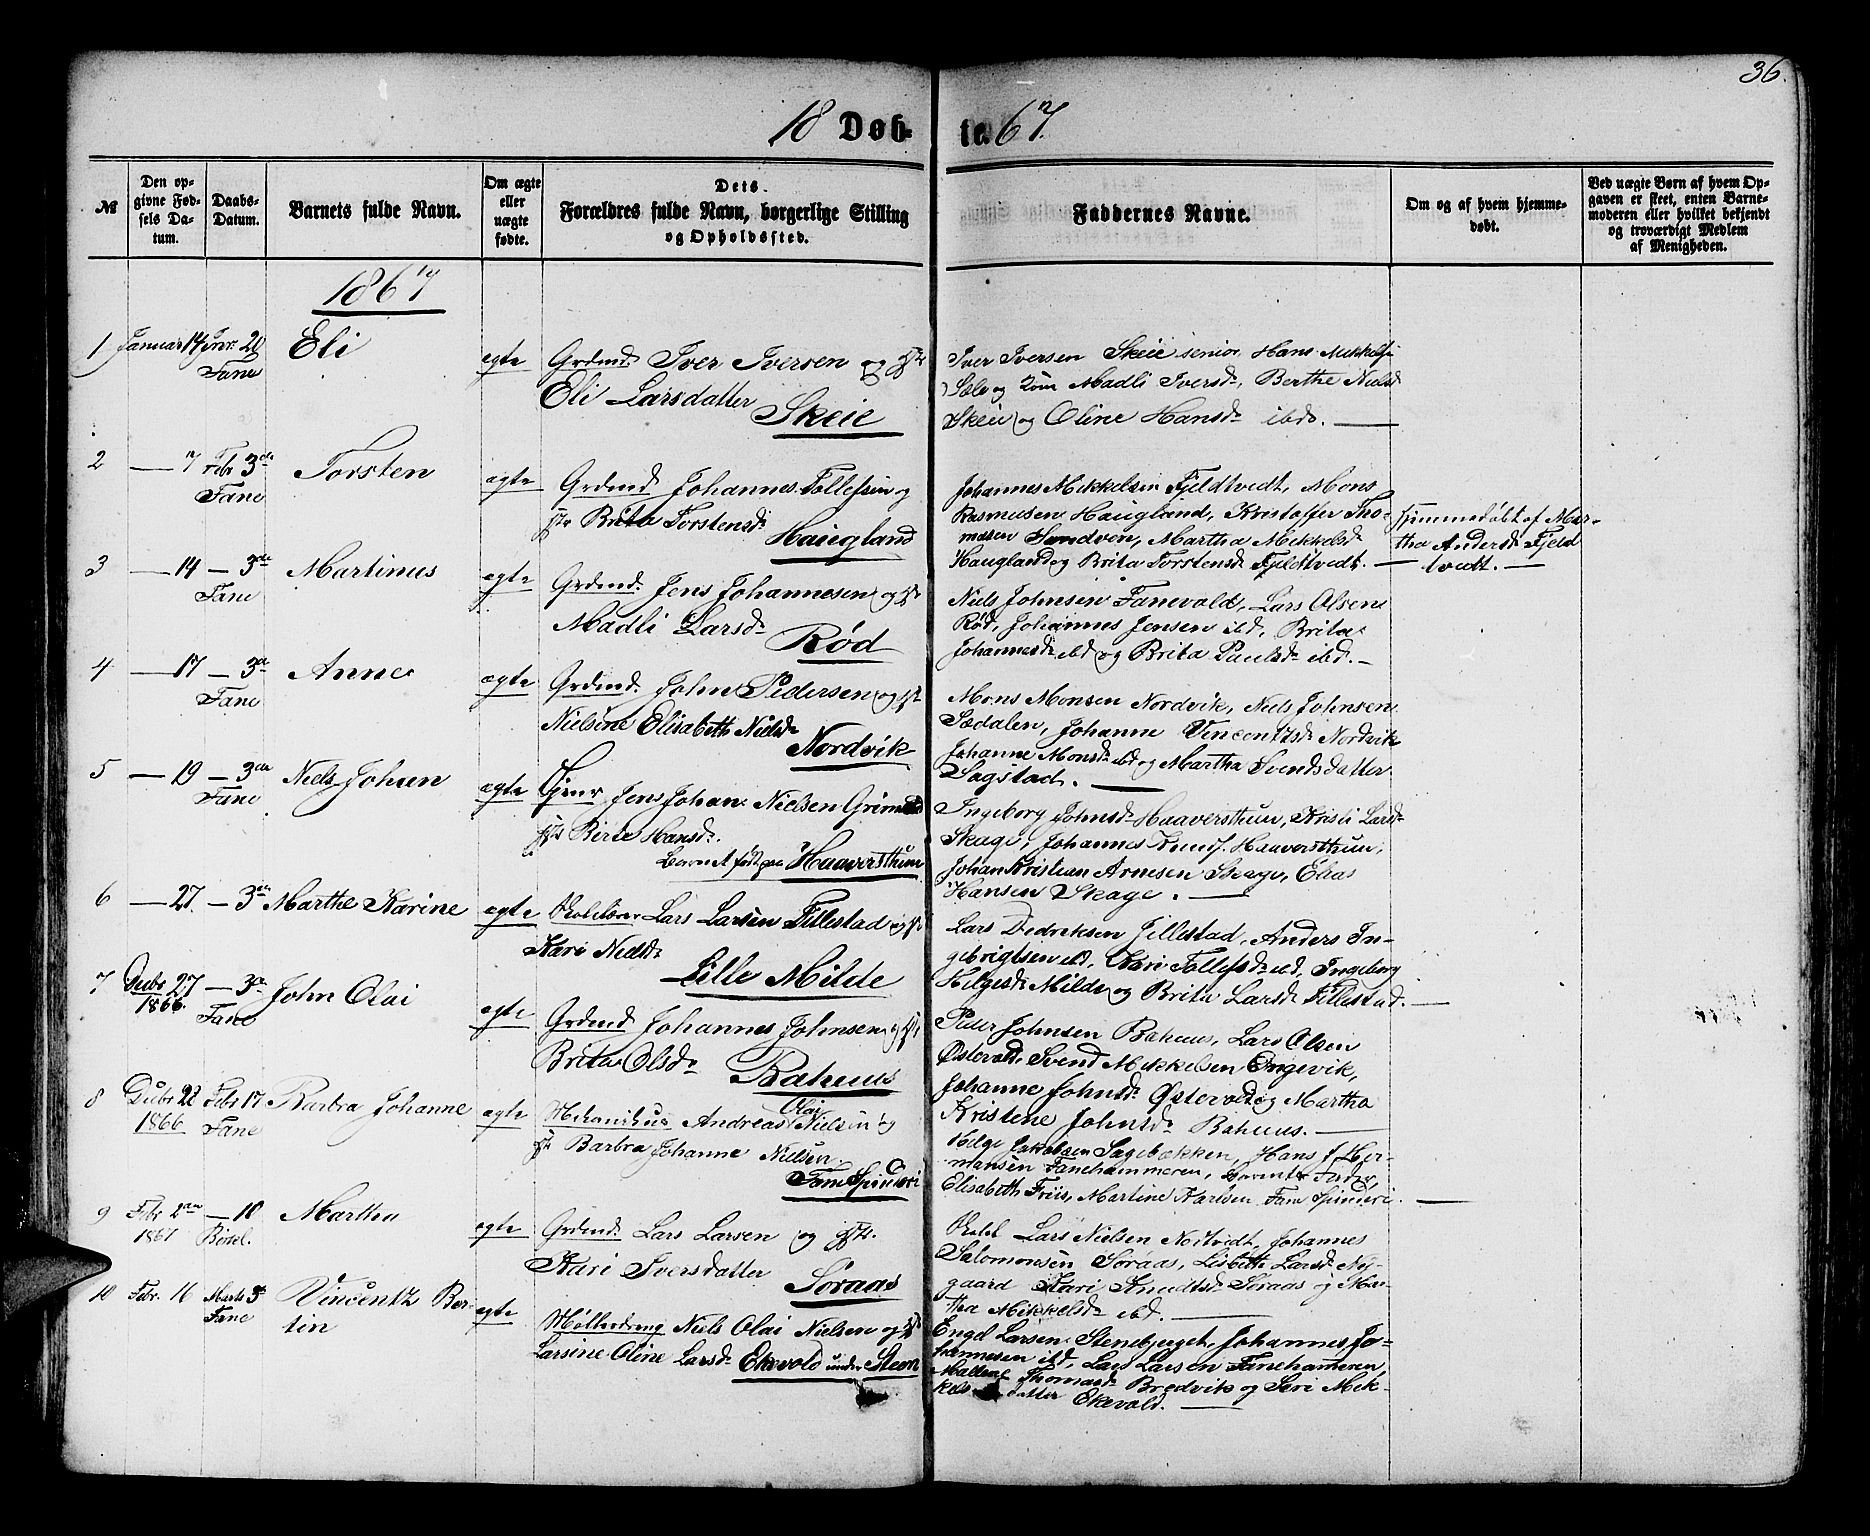 36.
18 Døb- te. 67.
№
Den op-
givne Fød-
sels Da-
tum.
Daabs-
Datum.
Barnets fulde Navn.
Om ægte
eller
uægte
fødte.
Dets
Forældres fulde Navn, borgerlige Stilling
og Opholdssted.
Faddernes Navne.
Om og af hvem hjemme-
døbt.
Ved uægte Børn af hvem Op-
gaven er skeet, enten Barne-
moderen eller hvilket bekjendt
og troværdigt Medlem
af Menigheden.
1867
1 Januar 14 Jnr. 20 Eli
Fane
egte Grdmd. Iver Iversen og hstr
Eli Larsdatter
Skeie
Iver Iversen Skeie senior, Hans Mikkels
Sæle og Kone Madli Iversd., Berthe Nielsd
Skeie og Oline Hansd. ibd.
2 — 7 Febr 3de Torsten
Fane
egte Grdmd. Johannes Tollefsen og
hstr Brita Torstensd.
Haugland
Johannes Mikkelsen Fjeldtvedt, Mons
Rasmusen Haugland, Kristoffer Tho-
mesen Sandven, Martha Mikkelsd.
Haugland og Brita Torstensd. Fjeldtvedt.
Hjemmedøbt af Mar-
tha Andersd. Fjeld
tvedt.
3 — 14 — 3de Martinus
Fane
egte Grdmd. Jens Johannesen og hstr
Madli Larsd.
Rød
Niels Johnsen Fanevold, Lars Olsen
Rød, Johannes Jensen ibd, Brita
Johannesd. ibd og Brita Paulsd. ibd.
4 — 17 — 3de Anne
Fane
egte Grdmd. John Pedersen og hstr
Nielsine Elisabeth Nielsd.
Nordvik
Mons Monsen Nordvik, Niels Johnsen
Sædalen, Johanne Vincentzd. Nordvik
Johanne Monsd. ibd og Martha Svendsdatter
Sagstad.
5 — 19 — 3de Niels Johan
Fane
egte Jens Johan Nielsen
hstr Birte Hansd.
Barnet født paa Haaversthun
Ingeborg Johnsd. Haaversthun, Kristi Larsd.
Skage, Johannes Knuds. Haaversthun,
Johan Kristian Arnesen Skage, Elias
Hansen Skage.
6 — 27. — 3de Marthe Karine
egte Lars Larsen Tillestad og hstr
Kari Nielsd.
Lille Milde
Lars Didriksen Tillestad, Anders In-
gebrigtsen ibd, Kari Tollefsd. ibd, Ingeborg
Helgesd. Milde og Brita Larsd. Tillestad.
7 Decbr 27 — 3de John Olai
1866. Fane
egte Grdmd Johannes Johnsen og hstr
Brita Olsd.
Rahuus
Peder Johnsen Rahuus, Lars Olsen
Østevold, Svend Mikkelsen Engevik,
Johanne Johnsd. Østevold og Martha
Kristene Johnsd. Rahuus.
8 Decbr 22 Febr 17 Barbra Johanne
1866 Fane
egte Mekanikus Andreas Olai Nielsen og
hstr Barbra Johanne Nielsen
Fane Spinderi
Helge Jakobsen Sagebakken, Hans J Her-
mansen Fanehammeren, Barnets Fader,
Elisabeth Friis, Martine Karlsen Fane Spinderi.
9 Febr 2den — 10 Martha
1867
egte Grdmd. Lars Larsen og hstr.
Kari Iversdatter
Søraas
Lars Nielsen Nottvedt, Johannes
Salomonsen Søraas, Lisbeth Larsd. Nøj-
gaard Kari Knudtsd. Søraas og Mar-
tha Mikkelsd. ibd.
10 Febr. 16 Marts 3 Vincentz Ber-
Fane tin
egte Møllerdreng Niels Olai Nielsen og hstr
Larsine Oline Larsd. Ekevold under Steen
Engel Larsen Stenebjerget, Johannes Jo-
hannesen ibd, Lars Larsen Fanehameren,
Malene Thomasd. Bredvik og Seri Mik-
kelsdatter Ekevold.